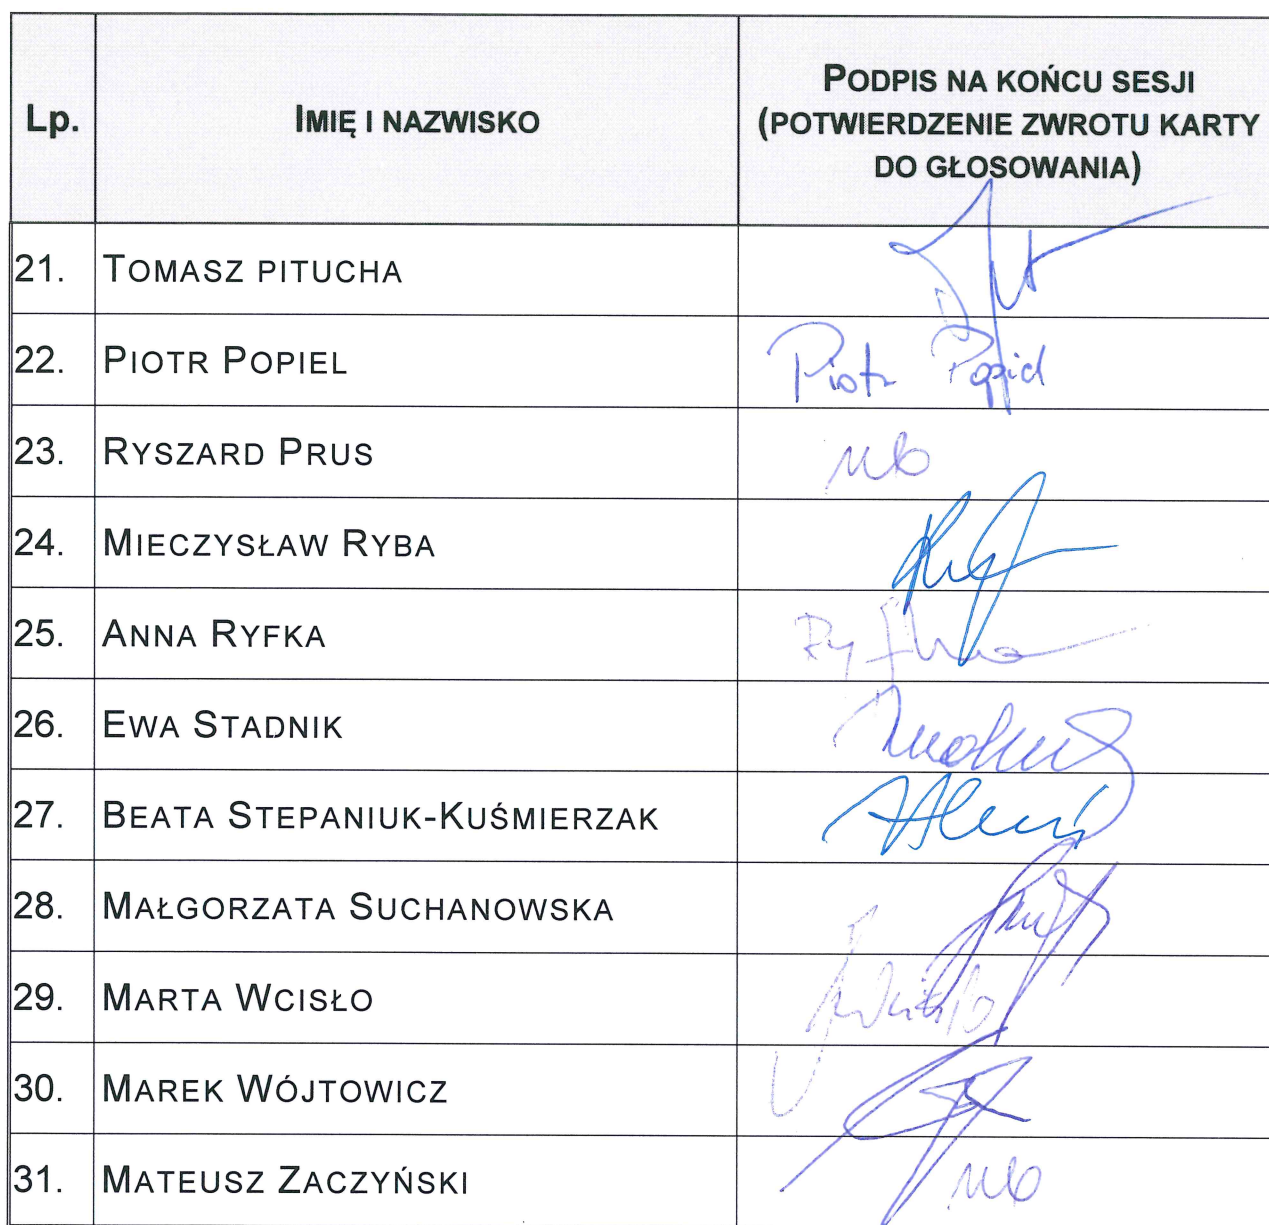 Lp.
IMIĘ I NAZWISKO
PODPIS NA KOŃCU SESJI
(POTWIERDZENIE ZWROTU KARTY
DO GŁOSOWANIA)
21. TOMASZ PITUCHA
22. PIOTR POPIEL Piotr Popiel
23. RYSZARD PRUS nb
24. MIECZYSŁAW RYBA
25. ANNA RYFKA Ryfka
26. EWA STADNIK
27. BEATA STEPANIUK-KUŚMIERZAK
28. MAŁGORZATA SUCHANOWSKA
29. MARTA WCISŁO Wcisło
30. MAREK WÓJTOWICZ
31. MATEUSZ ZACZYŃSKI nb